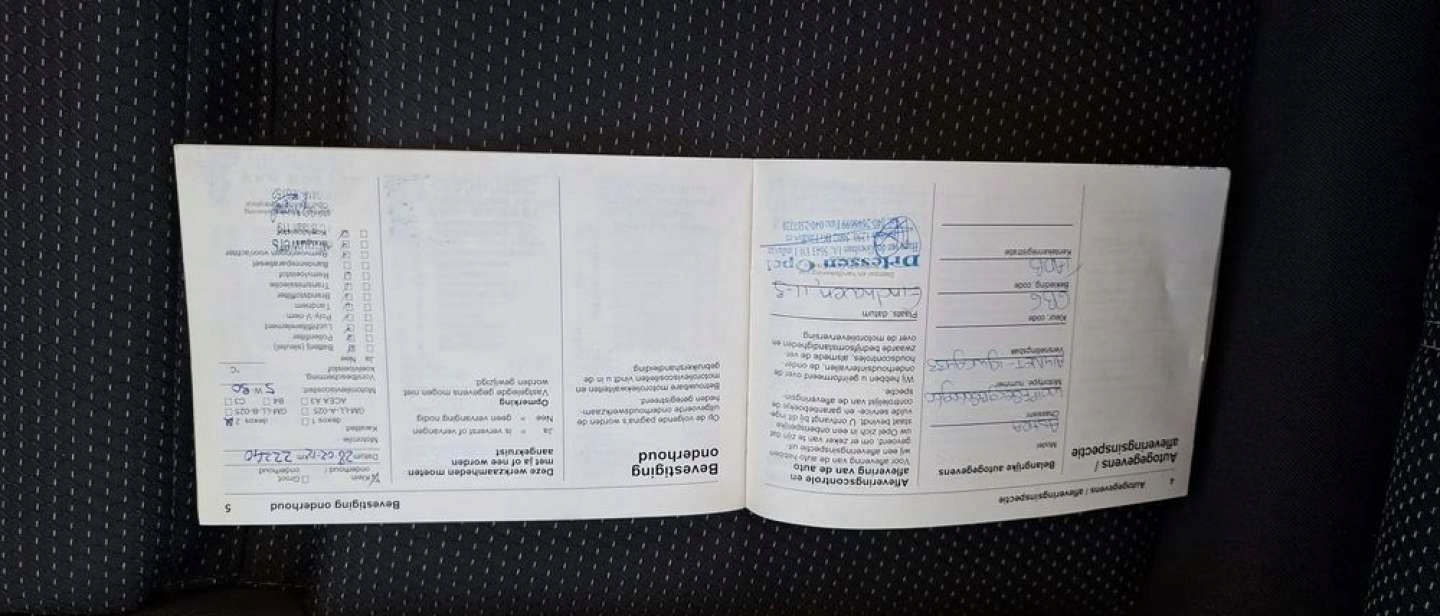 4
Autogegevens / afleveringsinspectie
Autogegevens /
afleveringsinspectie
Belangrijke autogegevens
Model
Chassisnr.
Motortype, nummer
Versnellingsbak
Kleur, code
GBG
Bekleding, code
Kentekenregistratie
Afleveringscontrole en
aflevering van de auto
Voor aflevering van de auto hebben
wij een afleveringsinspectie uit-
gevoerd, om er zeker van te zijn dat
uw Opel zich in een onberispelijke
staat bevindt. U ontvangt bij dit inge-
vulde service- en garantieboekje de
controlelijst van de afleveringsin-
spectie.
Wij hebben u geïnformeerd over de
onderhoudsintervallen, de onder-
houdscontroles, alsmede de ver-
zwaarde bedrijfsomstandigheden en
over de motorolieverversing
Plaats, datum
Eindhoven,
Driessen Opel
Bevestiging onderhoud
5
Bevestiging
onderhoud
Op de volgende pagina's worden de
uitgevoerde onderhoudswerkzaam-
heden geregistreerd.
Betrouwbare motoroliekwaliteiten en
motorolieviscositeiten vindt u in de
gebruikershandleiding.
Deze werkzaamheden moeten
met ja of nee worden
aangekruist
Ja = is ververst of vervangen
Nee = geen vervanging nodig
Opmerking
Vastgelegde gegevens mogen niet
worden gewijzigd.
Klein Groot
onderhoud / onderhoud
Datum km 22240
Motorolie
Kwaliteit:
dexos 1 dexos 2
GM-LL-A-025 GM-LL-B-025
ACEA A3 B4 C3
Motorolieviscositeit: 5 W 30
Vorstbescherming
koelvloeistof °C
Ja Nee
Batterij (sleutel)
Pollenfilter
Luchtfilterelement
Poly-V-riem
Tandriem
Brandstoffilter
Transmissieolie
Remvloeistof
Bandenreparatieset
Remvoeringen voor/achter